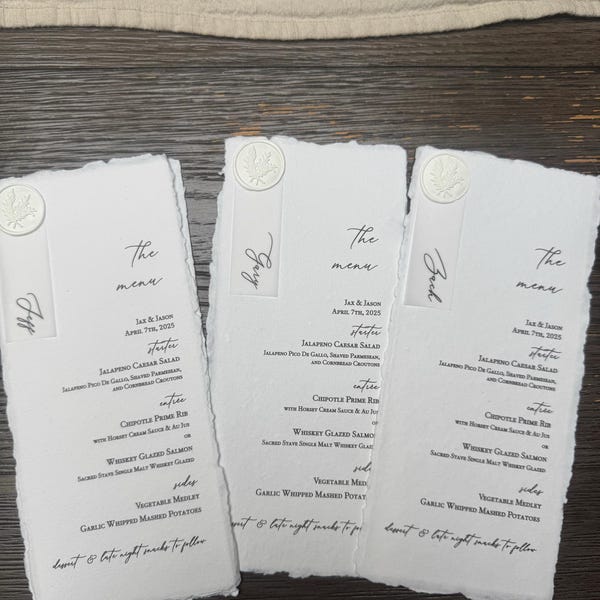 Jeff
The
menu
Jax & Jason
April 7th, 2025
starter
Jalapeno Caesar Salad
Jalapeno Pico De Gallo, Shaved Parmesan,
and Cornbread Croutons
entrée
Chipotle Prime Rib
with Horsey Cream Sauce & Au Jus
or
Whiskey Glazed Salmon
Sacred Stave Single Malt Whiskey Glazed
sides
Vegetable Medley
Garlic Whipped Mashed Potatoes
dessert & late night snacks to follow
Gary
The
menu
Jax & Jason
April 7th, 2025
starter
Jalapeno Caesar Salad
Jalapeno Pico De Gallo, Shaved Parmesan,
and Cornbread Croutons
entrée
Chipotle Prime Rib
with Horsey Cream Sauce & Au Jus
or
Whiskey Glazed Salmon
Sacred Stave Single Malt Whiskey Glazed
sides
Vegetable Medley
Garlic Whipped Mashed Potatoes
dessert & late night snacks to fo
Zach
The
menu
Jax & Jason
April 7th, 2025
starter
Jalapeno Caesar Salad
Jalapeno Pico De Gallo, Shaved Parmesan,
and Cornbread Croutons
entrée
Chipotle Prime Rib
with Horsey Cream Sauce & Au Jus
or
Whiskey Glazed Salmon
Sacred Stave Single Malt Whiskey Glazed
sides
Vegetable Medley
Garlic Whipped Mashed Potatoes
dessert & late night snacks to follow